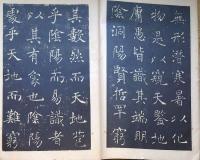 無形潛寒暑以化
物是以窺天鑒地
庸愚皆識其端明
陰洞陽賢哲罕窮
其數然而天地苞
乎陰陽而易識者
以其有象也陰陽
處乎天地而難窮